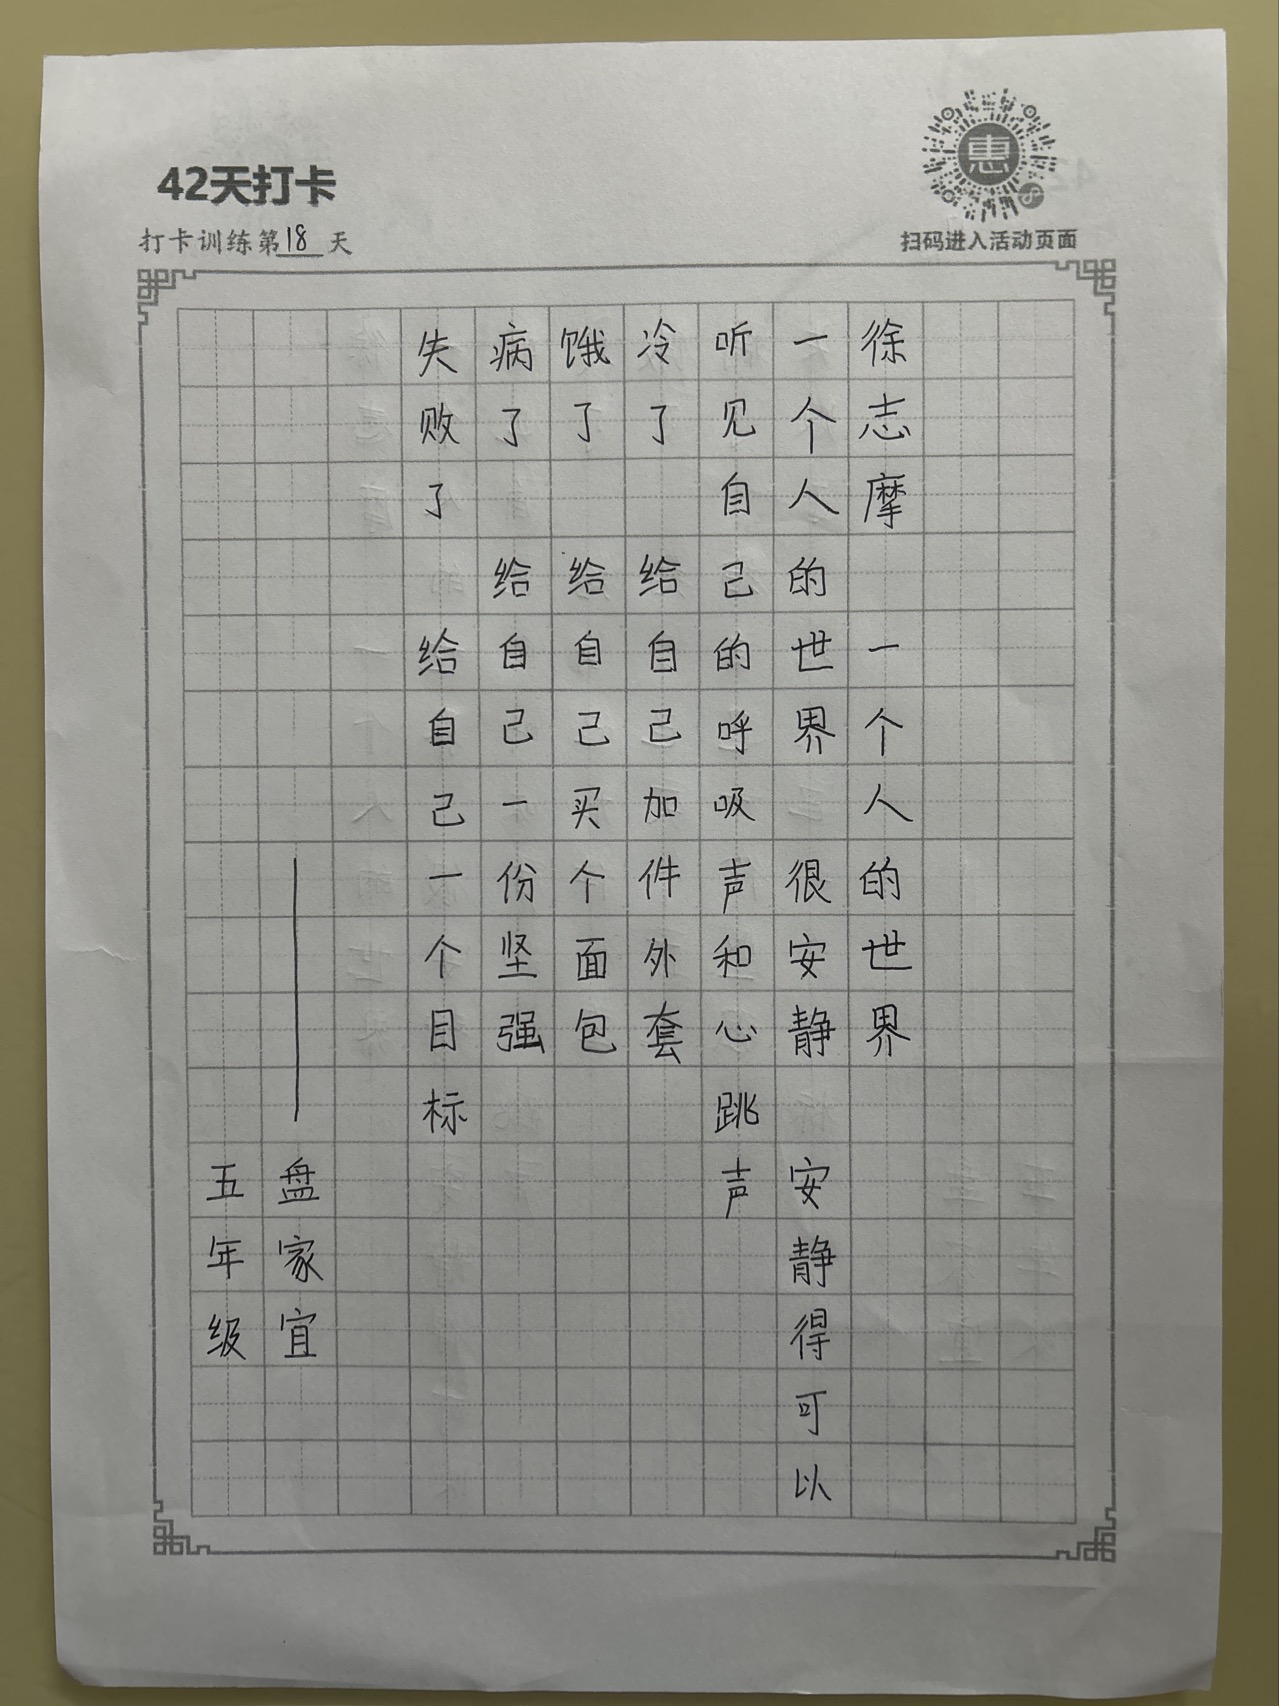 42天打卡
打卡训练第18天
惠
扫码进入活动页面
徐志摩 一个人的世界
一个人的世界 很安静 安静得可以
听见自己的呼吸声和心跳声
冷了 给自己加件外套
饿了 给自己买个面包
病了 给自己一份坚强
失败了 给自己一个目标
——盘家宜
五年级